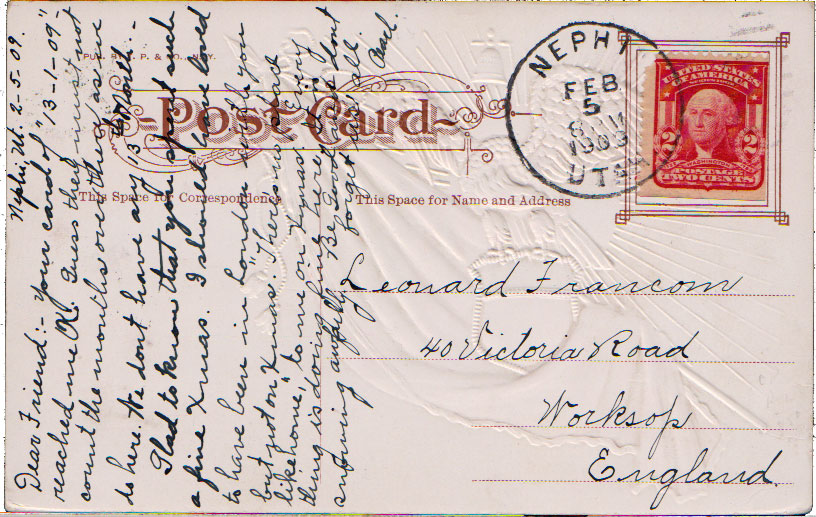 PUB. BY P. & CO. N.Y.
Post Card
This Space for Correspondence
This Space for Name and Address
NEPHI
FEB
5
8 AM
1909
UTAH
UNITED STATES
OF AMERICA
2 2
POSTAGE
TWO CENTS
Leonard Francom
40 Victoria Road
Worksop
England.
Nephi, Ut. 2-5-09.
Dear Friend:- Your card of "13-1-09"
reached me OK. Guess they must not
count the months over there as we
do here. We dont have any 13th Month.-
Glad to know that you spent such
a fine Xmas. I should have loved
to have been in London with you
but not on Xmas. "There's no place
like home," to me on Xmas. Every
thing is doing fine here. It is
snowing awfully. Be Good and dont
forget us all.